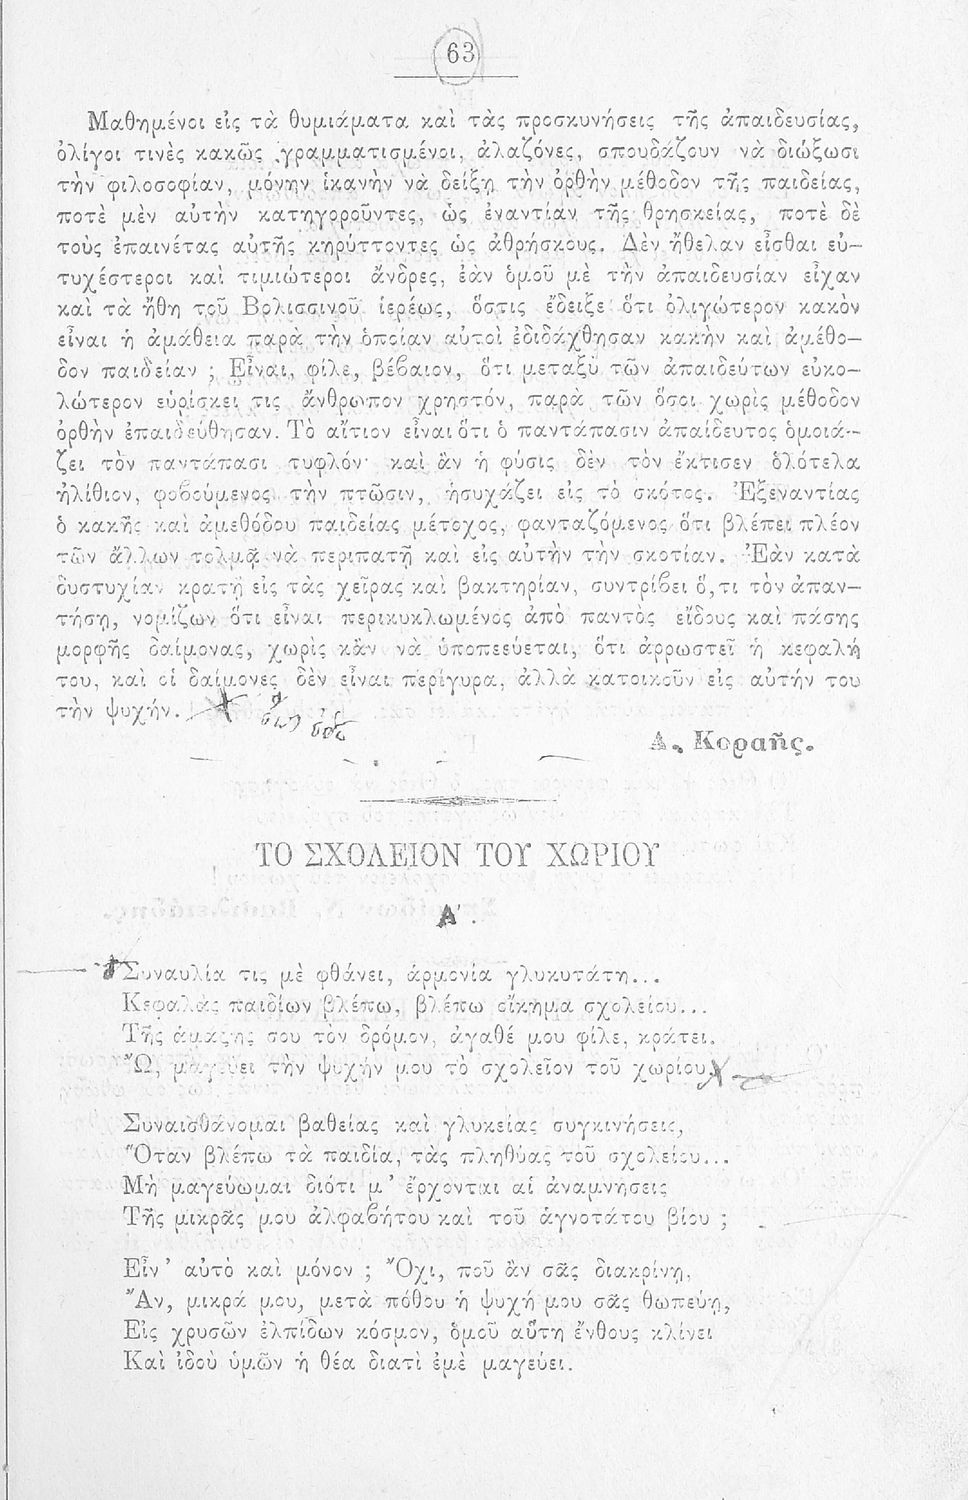 63
Μαθημένοι εἰς τὰ θυμιάματα καὶ τὰς προσκυνήσεις τῆς ἀπαιδευσίας,
ὀλίγοι τινὲς κακῶς γραμματισμένοι, ἀλαζόνες, σπουδάζουν νὰ διώξωσι
τὴν φιλοσοφίαν, μόνην ἱκανὴν νὰ δείξῃ τὴν ὀρθὴν μέθοδον τῆς παιδείας,
ποτὲ μὲν αὐτὴν κατηγοροῦντες, ὡς ἐναντίαν τῆς θρησκείας, ποτὲ δὲ
τοὺς ἐπαινέτας αὐτῆς κηρύττοντες ὡς ἀθρήσκους. Δὲν ἤθελαν εἶσθαι εὐ–
τυχέστεροι καὶ τιμιώτεροι ἄνδρες, ἐὰν ὁμοῦ μὲ τὴν ἀπαιδευσίαν εἶχαν
καὶ τὰ ἤθη τοῦ Βολισσινοῦ ἱερέως, ὅστις ἔδειξε ὅτι ὀλιγώτερον κακὸν
εἶναι ἡ ἀμάθεια παρὰ τὴν ὁποίαν αὐτοὶ ἐδιδάχθησαν κακὴν καὶ ἀμέθο–
δον παιδείαν ; Εἶναι, φίλε, βέβαιον, ὅτι μεταξὺ τῶν ἀπαιδεύτων εὐκο–
λώτερον εὑρίσκει τις ἄνθρωπον χρηστόν, παρὰ τῶν ὅσοι χωρὶς μέθοδον
ὀρθὴν ἐπαιδεύθησαν. Τὸ αἴτιον εἶναι ὅτι ὁ παντάπασιν ἀπαίδευτος ὁμοιά–
ζει τὸν παντάπασι τυφλόν· καὶ ἂν ἡ φύσις δὲν τὸν ἔκτισεν ὁλότελα
ἠλίθιον, φοβούμενος τὴν πτῶσιν, ἡσυχάζει εἰς τὸ σκότος. Ἐξεναντίας
ὁ κακῆς καὶ ἀμεθόδου παιδείας μέτοχος, φανταζόμενος ὅτι βλέπει πλέον
τῶν ἄλλων τολμᾷ νὰ περιπατῇ καὶ εἰς αὐτὴν τὴν σκοτίαν. Ἐὰν κατὰ
δυστυχίαν κρατῇ εἰς τὰς χεῖρας καὶ βακτηρίαν, συντρίβει ὅ,τι τὸν ἀπαν–
τήσῃ, νομίζων ὅτι εἶναι περικυκλωμένος ἀπὸ παντὸς εἴδους καὶ πάσης
μορφῆς δαίμονας, χωρὶς κἂν νὰ ὑποπεεύεται, ὅτι ἀρρωστεῖ ἡ κεφαλή
του, καὶ οἱ δαίμονες δὲν εἶναι περίγυρα, ἀλλὰ κατοικοῦν εἰς αὐτήν του
τὴν ψυχήν.
Α. Κοραῆς.
ΤΟ ΣΧΟΛΕΙΟΝ ΤΟΥ ΧΩΡΙΟΥ
Α΄.
Συναυλία τις μὲ φθάνει, ἁρμονία γλυκυτάτη...
Κεφαλὰς παιδίων βλέπω, βλέπω οἴκημα σχολείου...
Τῆς ἁμάξης σου τὸν δρόμον, ἀγαθέ μου φίλε, κράτει.
Ὤ, μαγεύει τὴν ψυχήν μου τὸ σχολεῖον τοῦ χωρίου.
Συναισθάνομαι βαθείας καὶ γλυκείας συγκινήσεις,
Ὅταν βλέπω τὰ παιδία, τὰς πληθύας τοῦ σχολείου...
Μὴ μαγεύωμαι διότι μ' ἔρχονται αἱ ἀναμνήσεις
Τῆς μικρᾶς μου ἀλφαβήτου καὶ τοῦ ἁγνοτάτου βίου ;
Εἶν' αὐτὸ καὶ μόνον ; Ὄχι, ποῦ ἂν σᾶς διακρίνῃ,
Ἄν, μικρά μου, μετὰ πόθου ἡ ψυχή μου σᾶς θωπεύῃ,
Εἰς χρυσῶν ἐλπίδων κόσμον, ὁμοῦ αὕτη ἔνθους κλίνει
Καὶ ἰδοὺ ὑμῶν ἡ θέα διατὶ ἐμὲ μαγεύει.